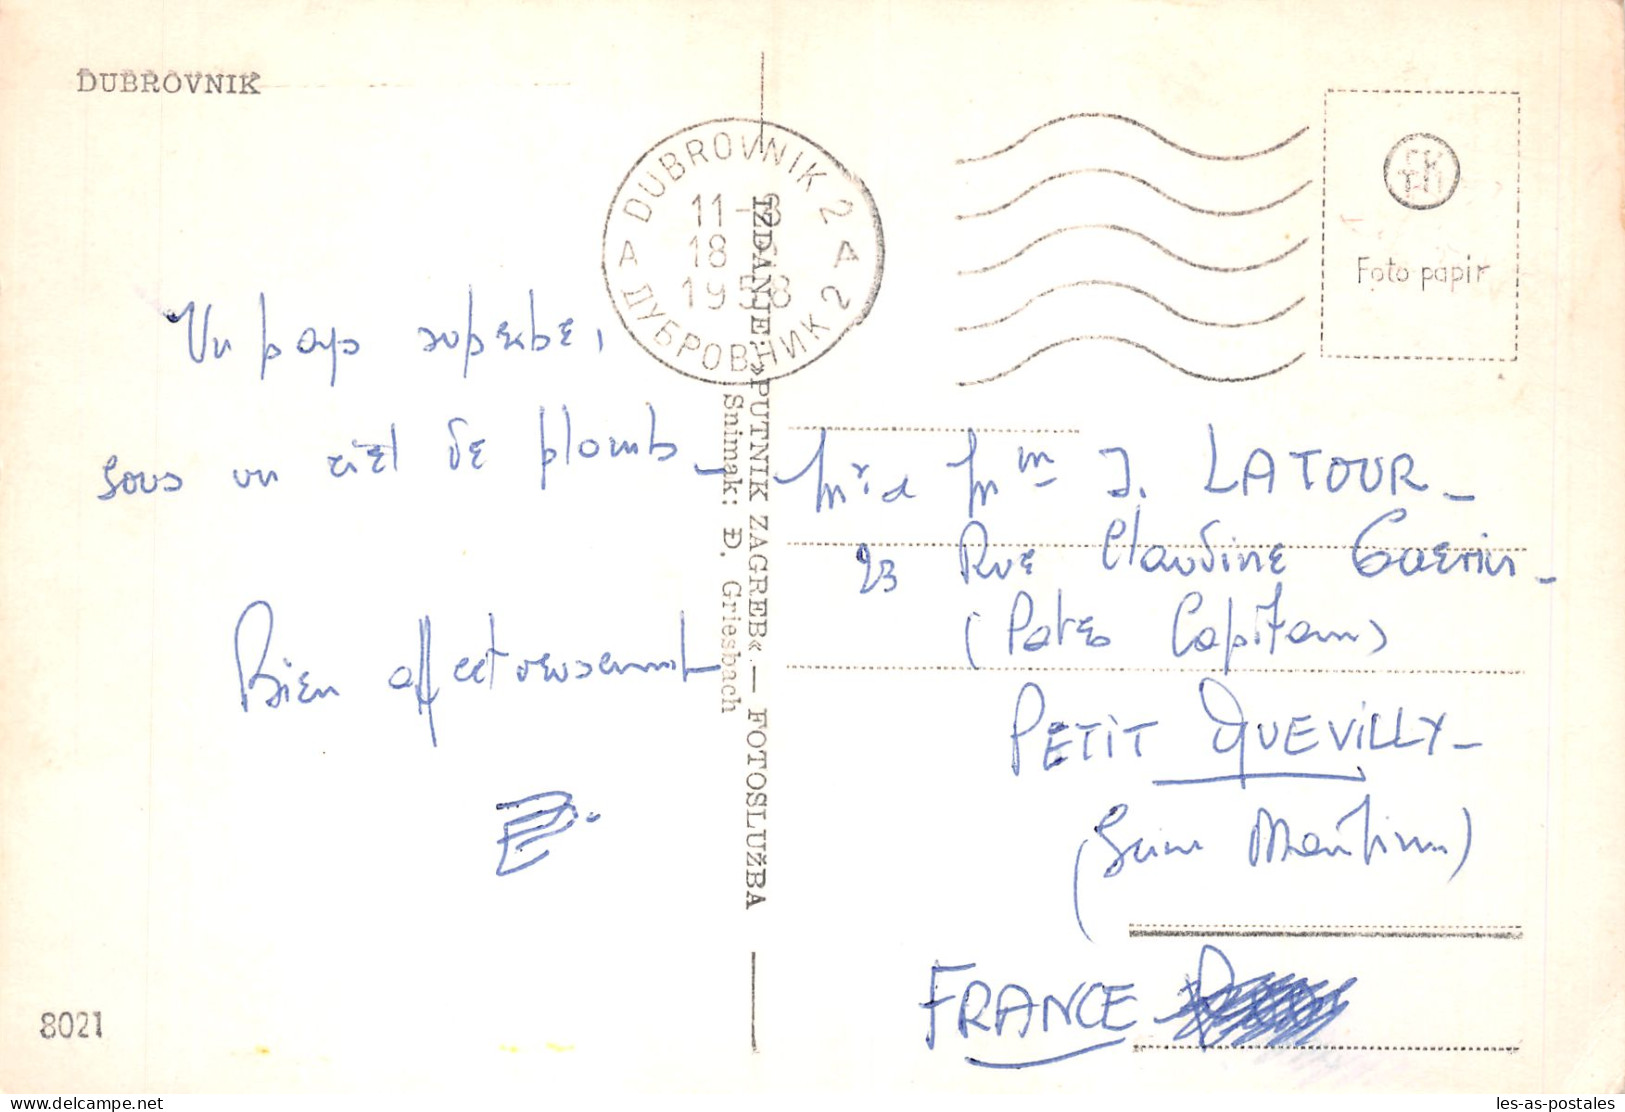 DUBROVNIK
DUBROVNIK 2
A A
11-8
18
1958
ДУБРОВНИК 2
Foto papir
Un pays superbe,
sous un ciel de plomb_
Bien affectueusement
IZDANJE: »PUTNIK ZAGREB« — FOTOSLUŽBA
Snimak: Đ. Griesbach
Mr & Mme J. LATOUR_
23 Rue Claudine Guerin_
(Pates Capitaine)
PETIT QUEVILLY_
(Seine Maritime)
FRANCE
8021
les-as-postales
Delcampe.net